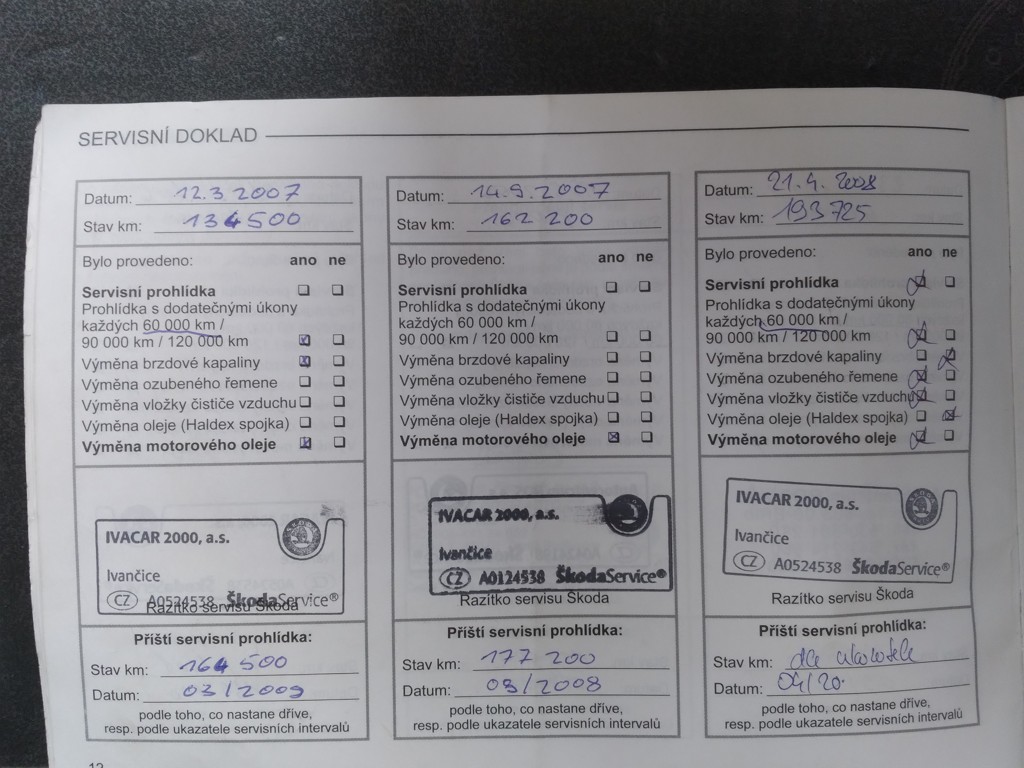 SERVISNÍ DOKLAD
Datum: 12.3.2007
Stav km: 134500
Bylo provedeno: ano ne
Servisní prohlídka
Prohlídka s dodatečnými úkony
každých 60 000 km /
90 000 km / 120 000 km
Výměna brzdové kapaliny
Výměna ozubeného řemene
Výměna vložky čističe vzduchu
Výměna oleje (Haldex spojka)
Výměna motorového oleje
IVACAR 2000, a.s.
Ivančice
CZ A0524538 ŠkodaService®
Razítko servisu Škoda
Příští servisní prohlídka:
Stav km: 164 500
Datum: 03/2009
podle toho, co nastane dříve,
resp. podle ukazatele servisních intervalů
Datum: 14.9.2007
Stav km: 162 200
Bylo provedeno: ano ne
Servisní prohlídka
Prohlídka s dodatečnými úkony
každých 60 000 km /
90 000 km / 120 000 km
Výměna brzdové kapaliny
Výměna ozubeného řemene
Výměna vložky čističe vzduchu
Výměna oleje (Haldex spojka)
Výměna motorového oleje
IVACAR 2000, a.s.
Ivančice
CZ A0124538 ŠkodaService®
Razítko servisu Škoda
Příští servisní prohlídka:
Stav km: 177 200
Datum: 09/2008
podle toho, co nastane dříve,
resp. podle ukazatele servisních intervalů
Datum: 21.4.2008
Stav km: 193725
Bylo provedeno: ano ne
Servisní prohlídka
Prohlídka s dodatečnými úkony
každých 60 000 km /
90 000 km / 120 000 km
Výměna brzdové kapaliny
Výměna ozubeného řemene
Výměna vložky čističe vzduchu
Výměna oleje (Haldex spojka)
Výměna motorového oleje
IVACAR 2000, a.s.
Ivančice
CZ A0524538 ŠkodaService®
Razítko servisu Škoda
Příští servisní prohlídka:
Stav km: dle ukazatele
Datum: 04/20
podle toho, co nastane dříve,
resp. podle ukazatele servisních intervalů